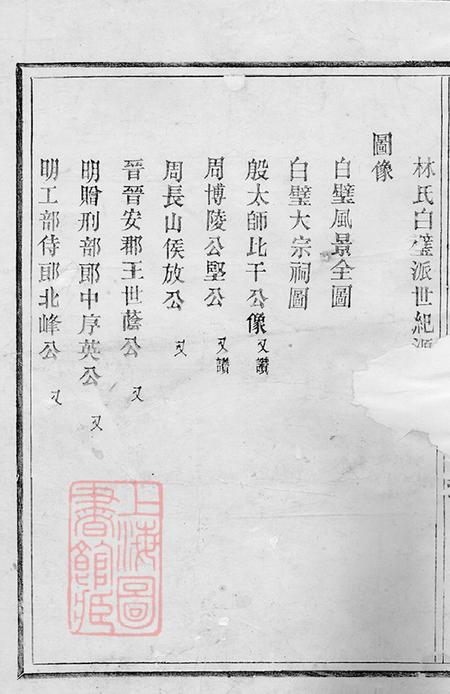 林氏白璧派世紀源
圖像
白璧風景全圖
白璧大宗祠圖
殷太師比干公像 又讚
周博陵公堅公 又讚
周長山侯放公 又
晉晉安郡王世蔭公 又
明贈刑部郎中序英公 又
明工部侍郎北峰公 又
上海圖
書館藏